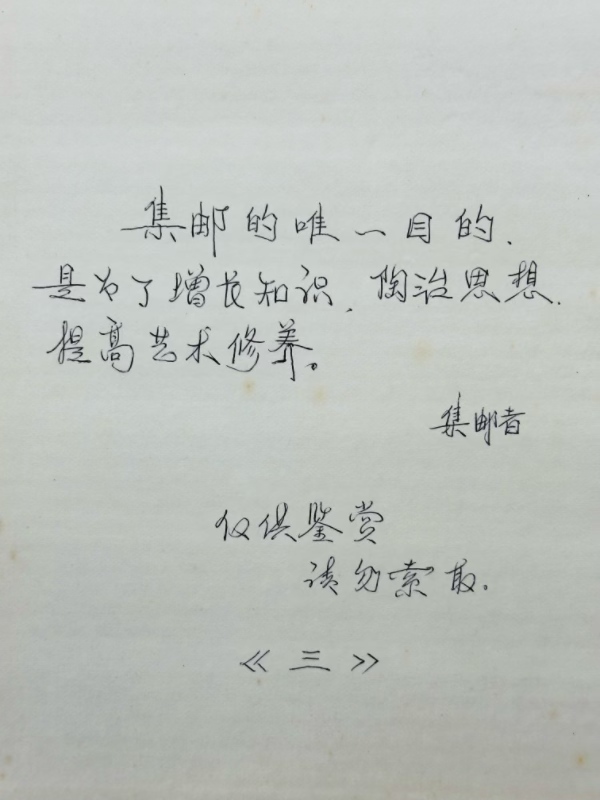 集邮的唯一目的、
是为了增长知识、陶冶思想、
提高艺术修养。
集邮者
仅供鉴赏
请勿索取.
《三》